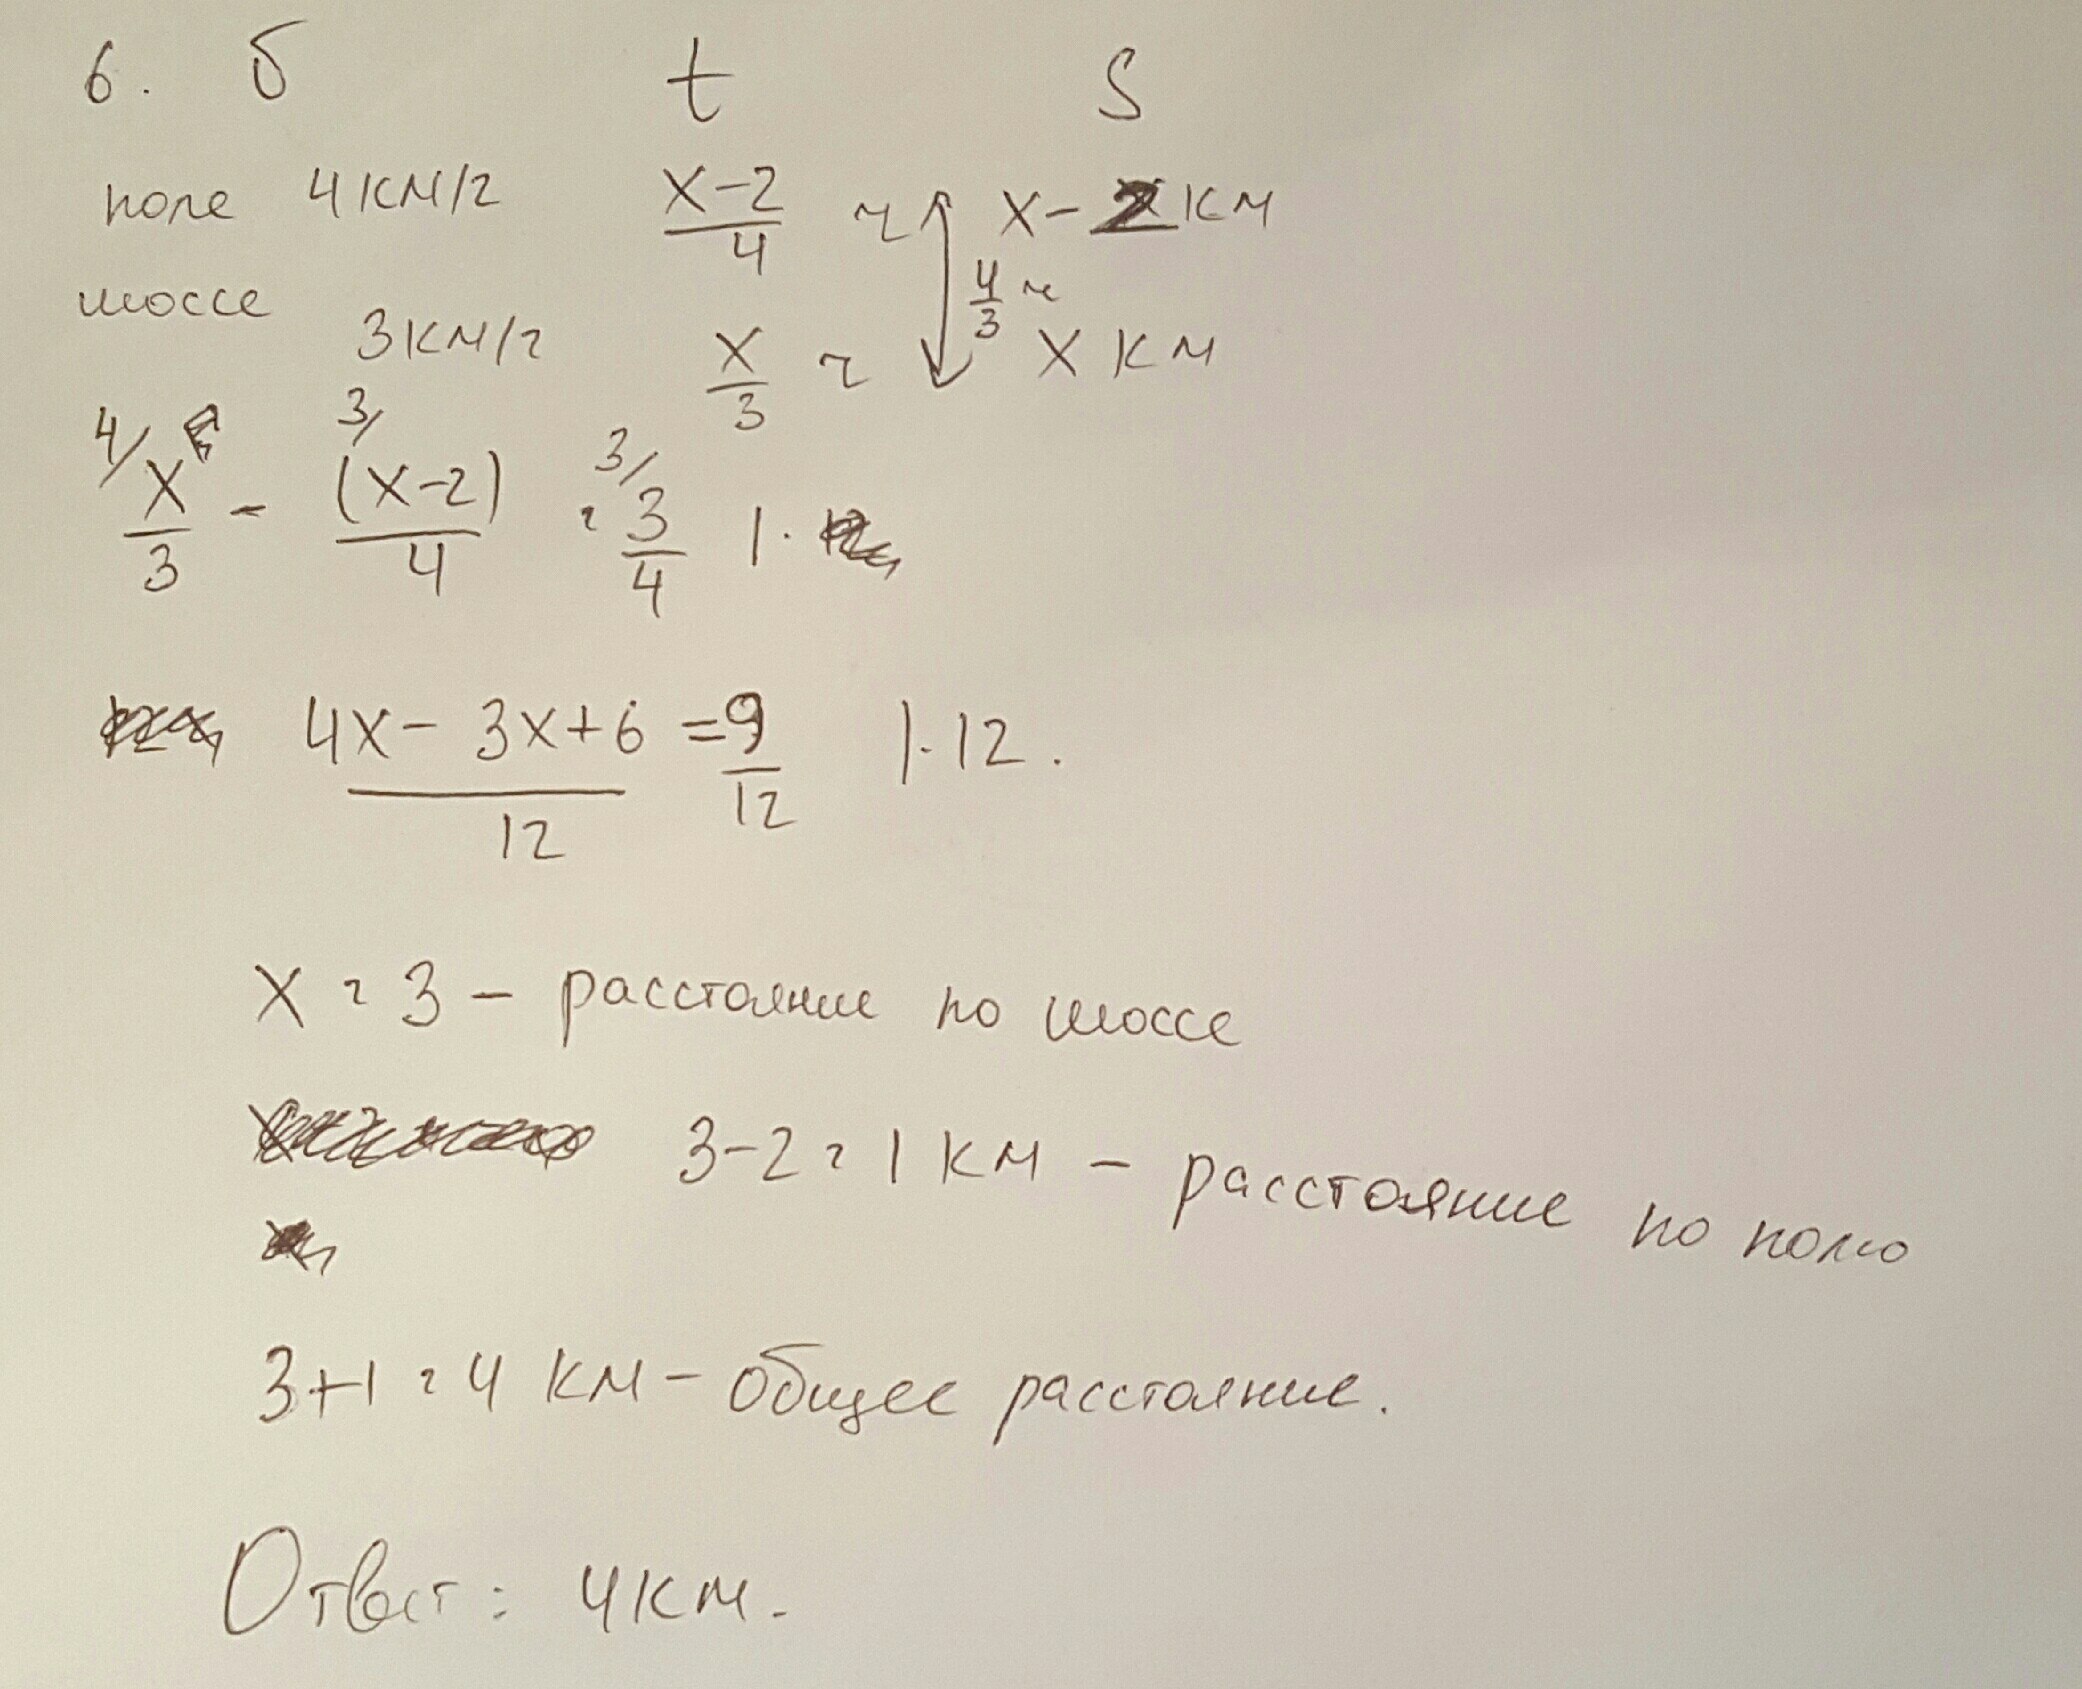 6. б t S
поле 4 км/ч x-2/4 ч x-2 км
4/3 ч
шоссе 3 км/ч x/3 ч x км
4/ 3/ 3/
x/3 - (x-2)/4 = 3/4 | ·
4x - 3x + 6/12 = 9/12 | · 12.
x = 3 - расстояние по шоссе
3-2 = 1 км - расстояние по полю
3+1 = 4 км - общее расстояние.
Ответ: 4 км.